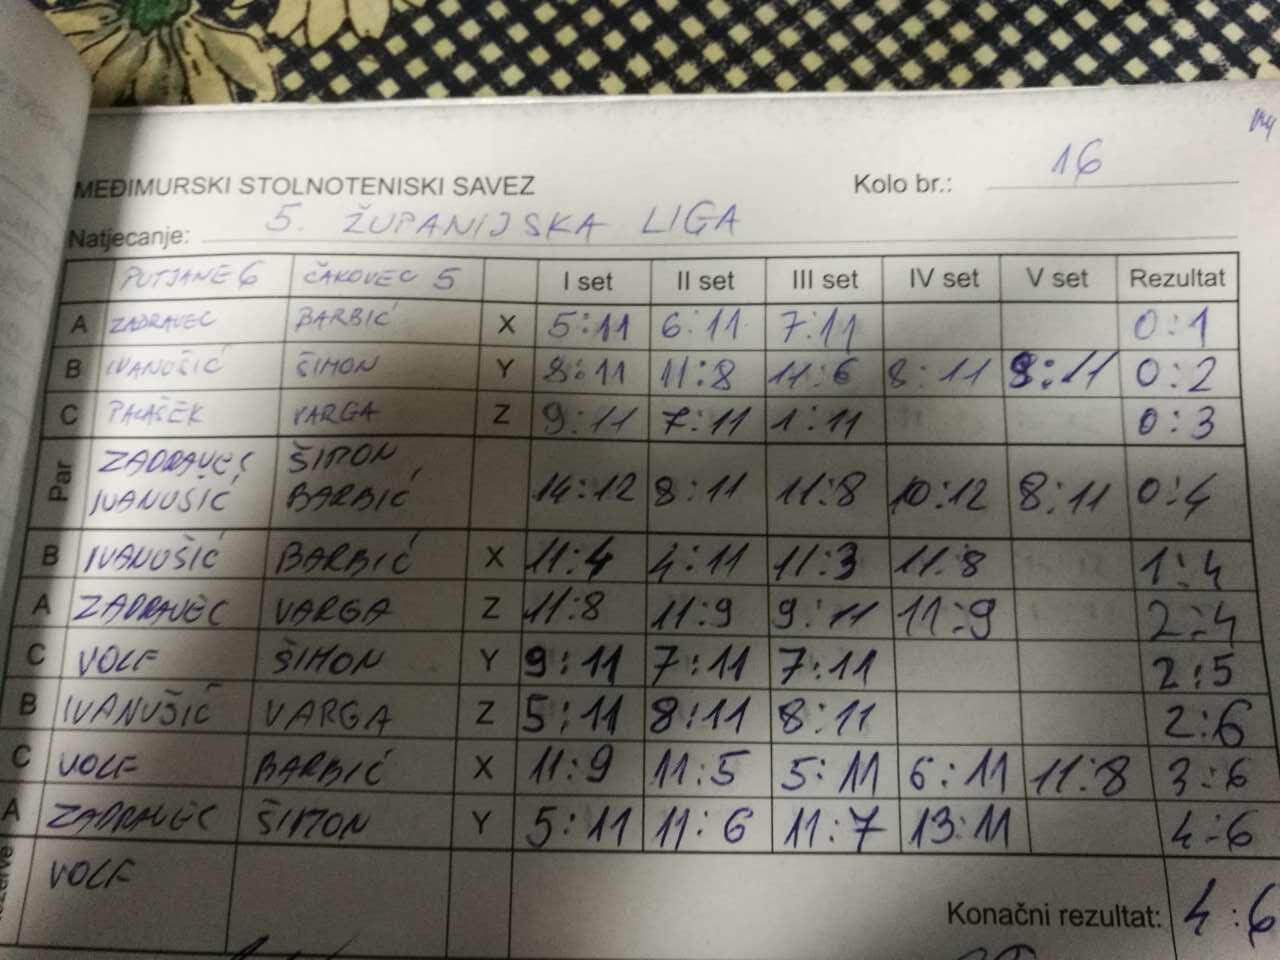 MEĐIMURSKI STOLNOTENISKI SAVEZ Kolo br.: 16
Natjecanje: 5. ŽUPANIJSKA LIGA
PUTJANE 6 ČAKOVEC 5 I set II set III set IV set V set Rezultat
A ZADRAVEC BARBIĆ X 5:11 6:11 7:11 0:1
B IVANUŠIĆ ŠIMON Y 8:11 11:8 11:6 8:11 8:11 0:2
C PALAŠEK VARGA Z 9:11 7:11 1:11 0:3
Par ZADRAVEC ŠIMON
IVANUŠIĆ BARBIĆ 14:12 8:11 11:8 10:12 8:11 0:4
B IVANUŠIĆ BARBIĆ X 11:4 4:11 11:3 11:8 1:4
A ZADRAVEC VARGA Z 11:8 11:9 9:11 11:9 2:4
C VOLF ŠIMON Y 9:11 7:11 7:11 2:5
B IVANUŠIĆ VARGA Z 5:11 8:11 8:11 2:6
C VOLF BARBIĆ X 11:9 11:5 5:11 6:11 11:8 3:6
A ZADRAVEC ŠIMON Y 5:11 11:6 11:7 13:11 4:6
VOLF
Konačni rezultat: 4:6